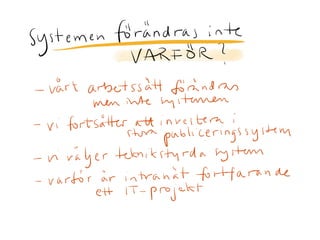 Systemen förändras inte
VARFÖR?
- vårt arbetssätt förändras
men inte systemen
- vi fortsätter att investera i
stora publiceringssystem
- vi väljer teknikstyrda system
- varför är intranät fortfarande
ett IT-projekt